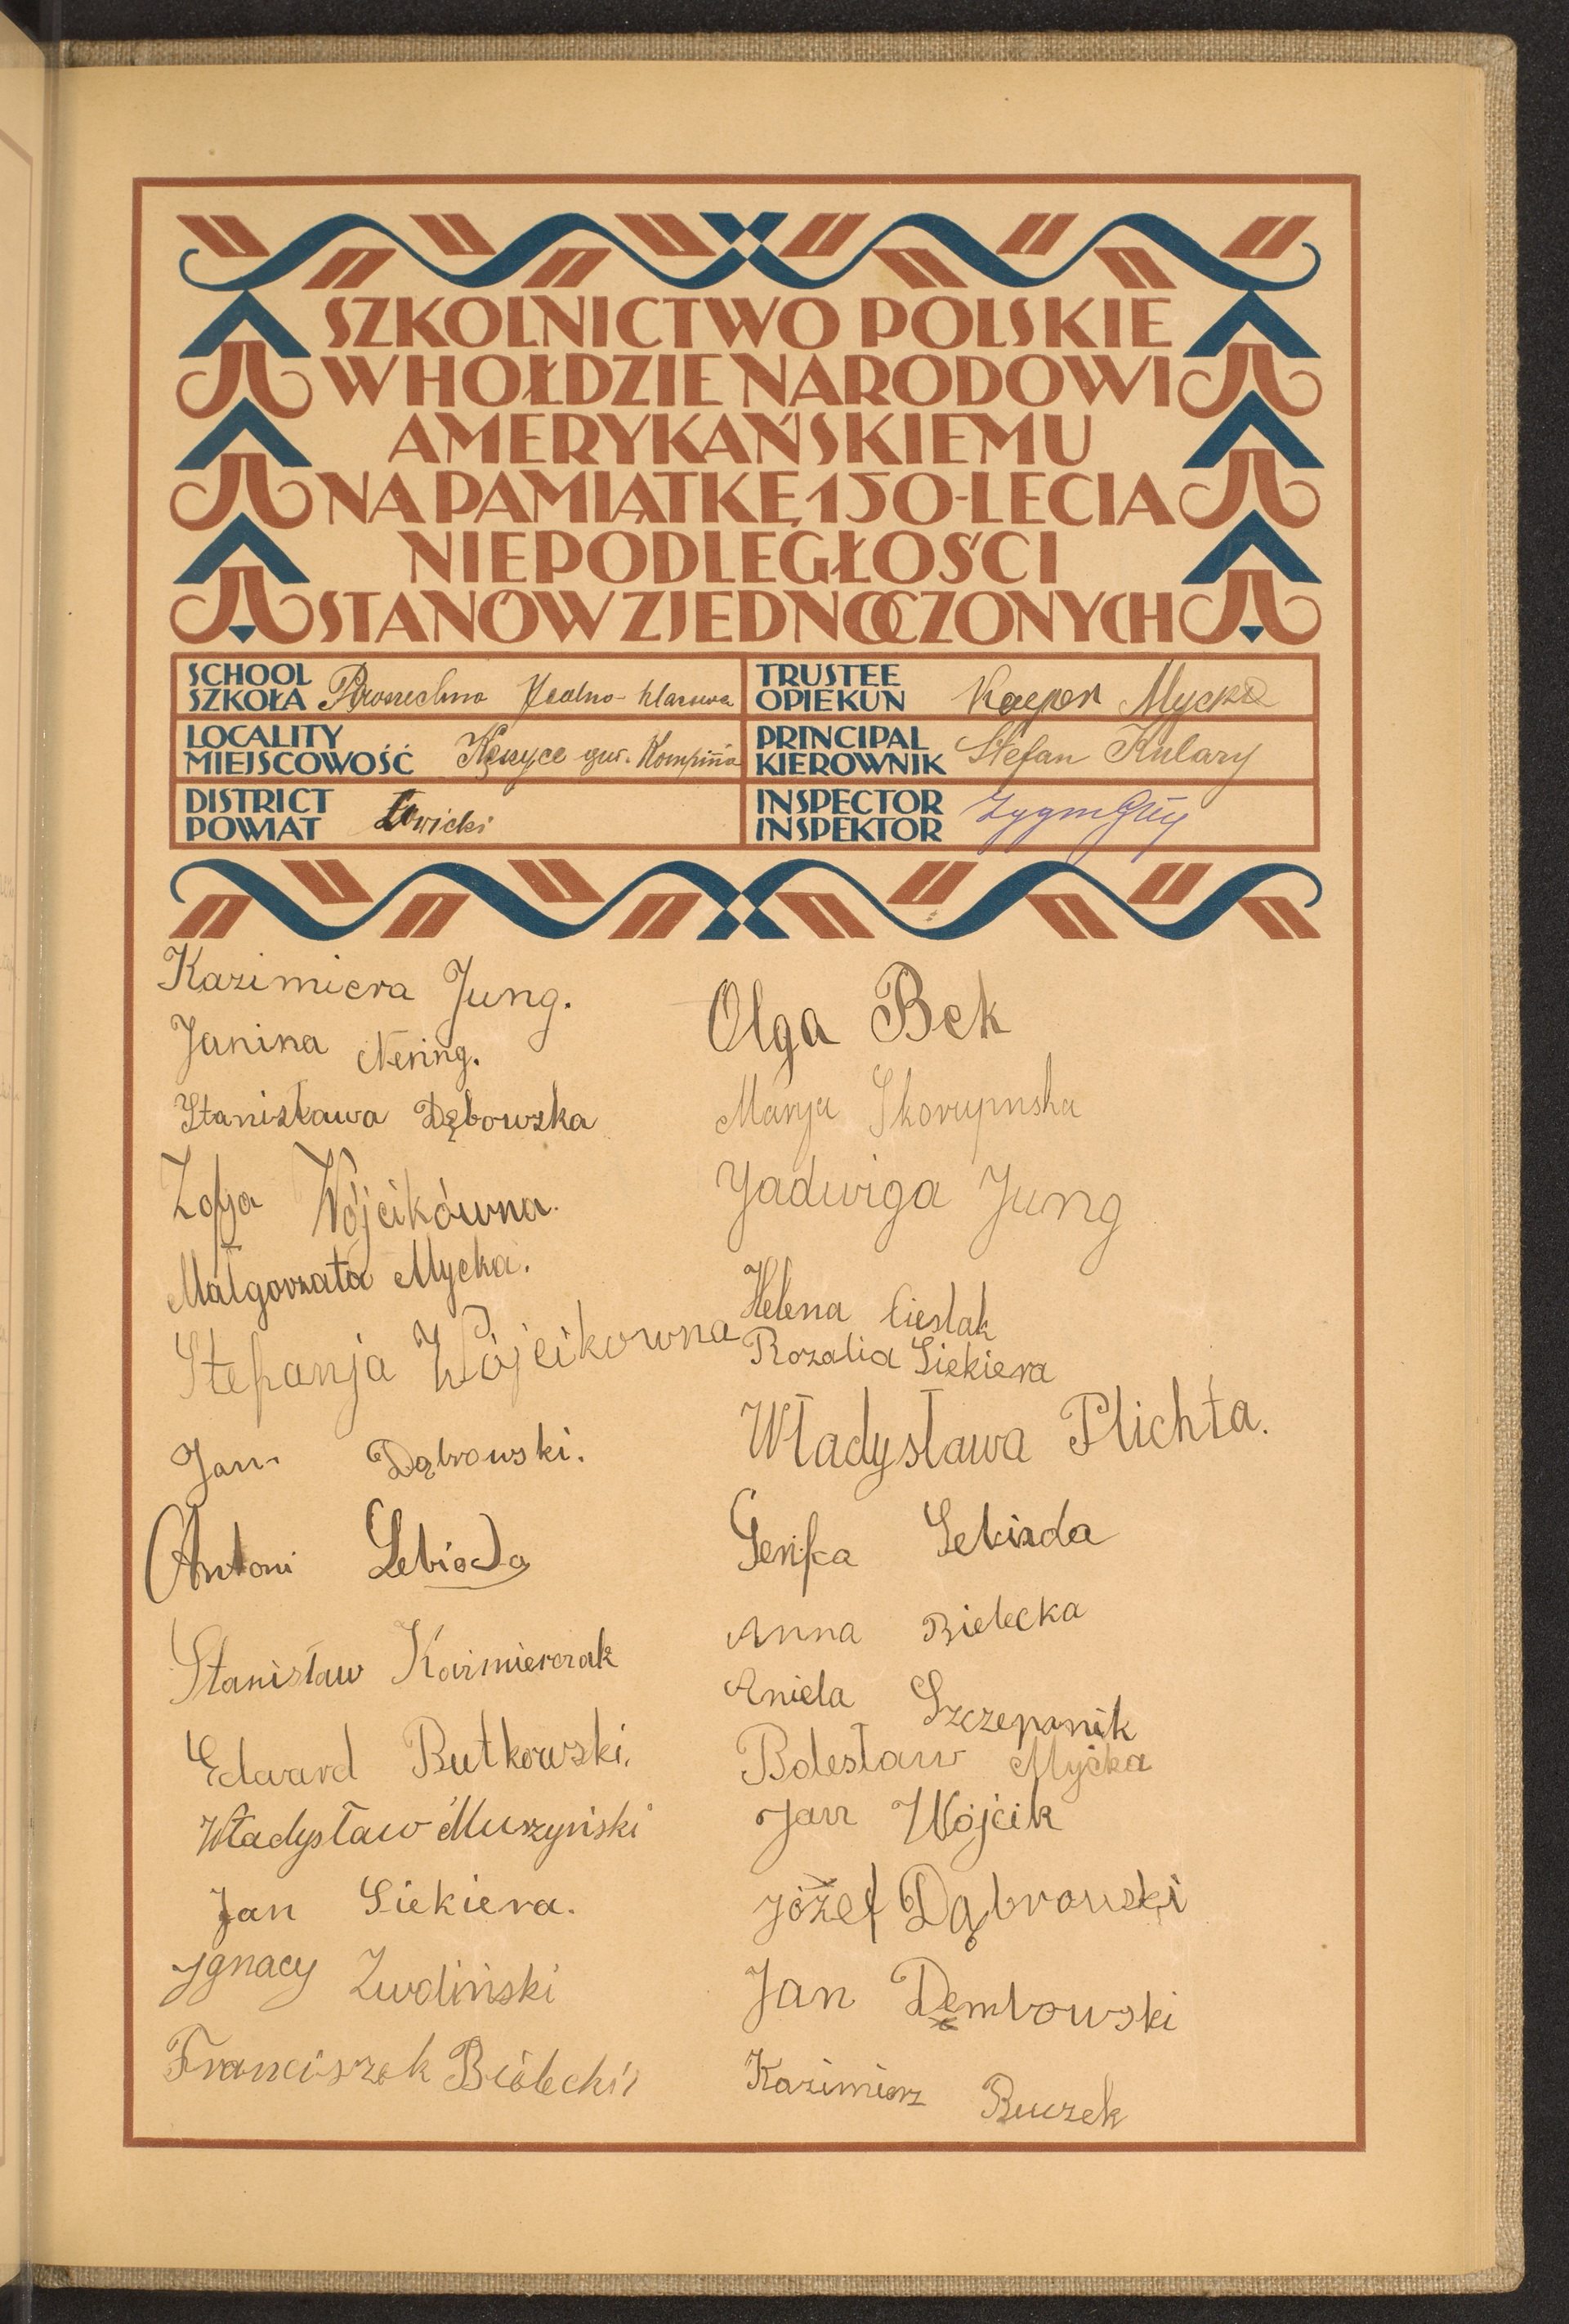 SZKOLNICTWO POLSKIE
W HOŁDZIE NARODOWI
AMERYKAŃSKIEMU
NA PAMIĄTKĘ 150-LECIA
NIEPODLEGŁOŚCI
STANÓW ZJEDNOCZONYCH
SCHOOL
SZKOŁA Powszechna klasowa
TRUSTEE
OPIEKUN Kacper Mycka
LOCALITY
MIEJSCOWOŚĆ Kęszyce gm. Kompina
PRINCIPAL
KIEROWNIK Stefan Kulary
DISTRICT
POWIAT Łowicki
INSPECTOR
INSPEKTOR
Kazimiera Jung.
Janina Nering.
Stanisława Dębowska
Zofja Wójcikówna.
Małgorzata Mycka.
Stefanja Wójcikowna
Jan Dąbrowski.
Antoni Lebioda
Stanisław Kaźmierczak
Edward Butkowski.
Władysław Muszyński
Jan Siekiera.
Jgnacy Zwoliński
Franciszek Bielecki
Olga Bek
Marja Skorupinska
Jadwiga Jung
Helena Cieslak
Rozalia Siekiera
Władysława Plichta.
Genfca Lebioda
Anna Bielecka
Aniela Szczepanik
Bolesław Mycka
Jan Wójcik
Józef Dąbrowski
Jan Dembowski
Kazimierz Buczek